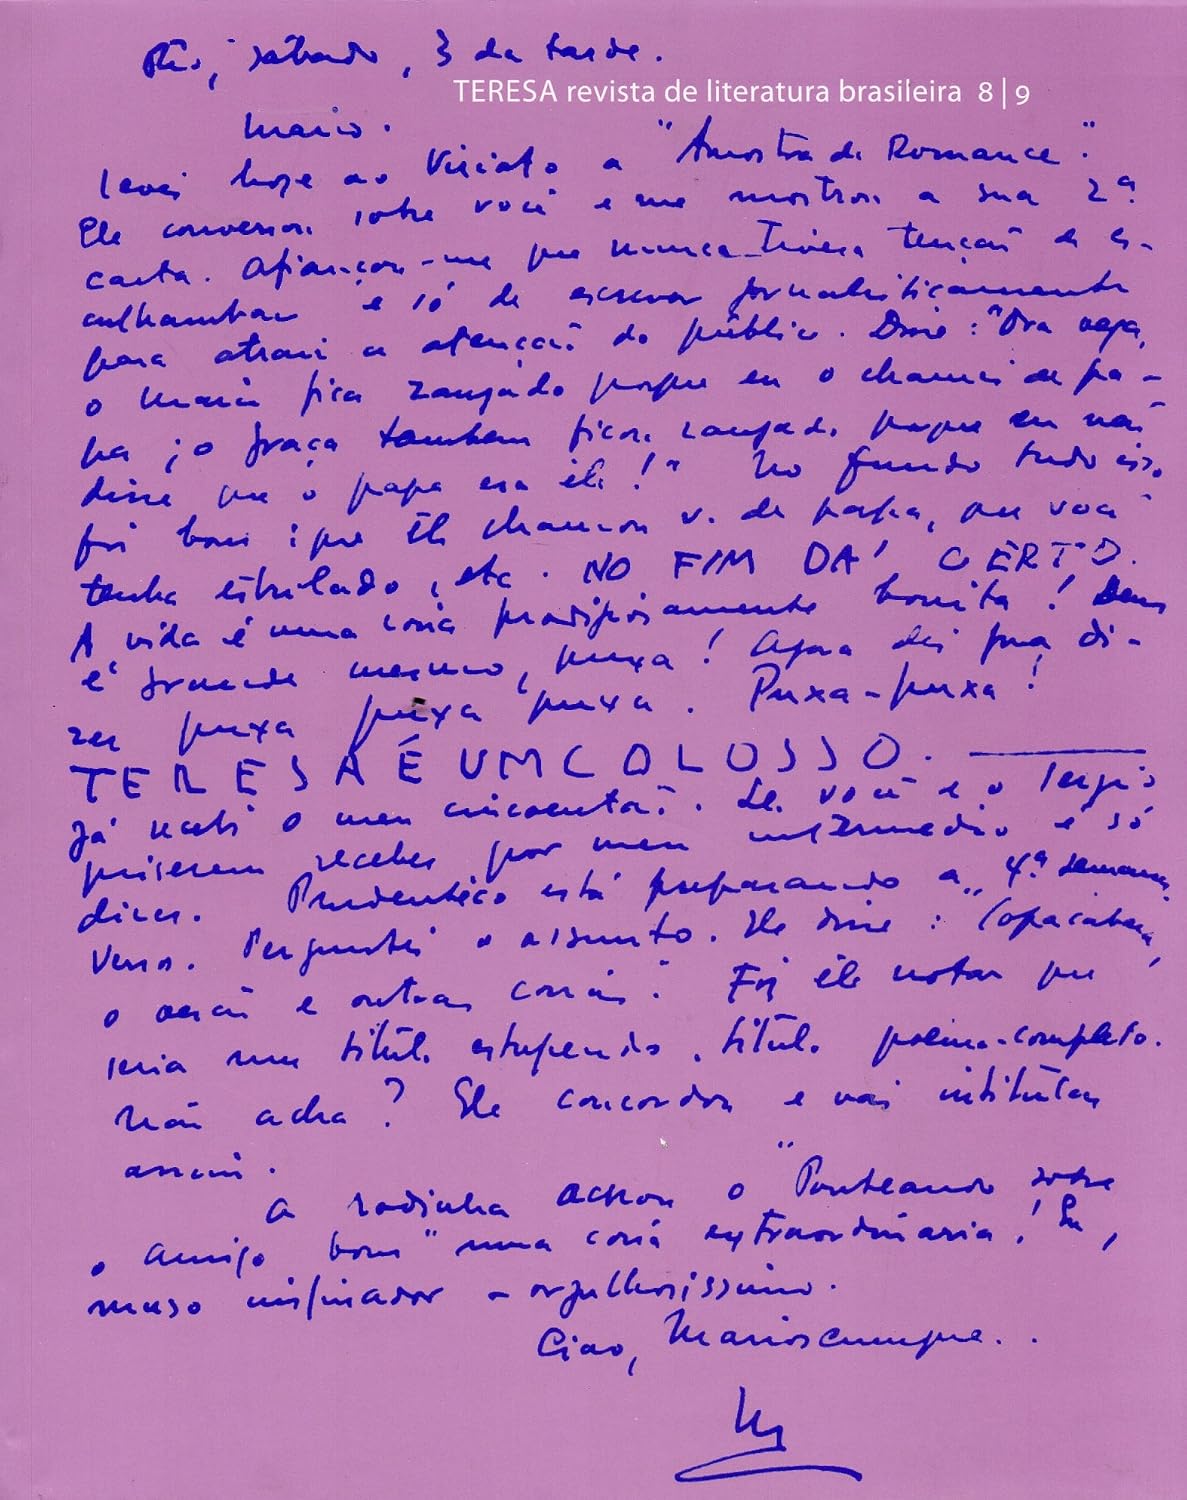 Rio, sábado, 3 da tarde.
TERESA revista de literatura brasileira 8|9
Mario.
Levei hoje ao Viriato a "Amostra de Romance".
Ele conversou sobre você e me mostrou a sua 2ª
carta. Afiançou-me que nunca tivera tenção de es-
culhambar e só de escrever jornalisticamente
para atrair a atenção do público. Disse: "Ora veja,
o Mario fica zangado porque eu o chamei de pa-
pa; o Graça tambem ficou zangado porque eu não
disse que o papa era êle!" No fundo tudo isso
foi bom: que êle chamou v. de papa, que você
tenha estrilado, etc. NO FIM DÁ CERTO.
A vida é uma coisa prodigiosamente bonita! Deus
é grande mesmo, puxa! Agora dei pra di-
zer puxa puxa puxa. Puxa-puxa!
TERESA É UM COLOSSO.
Já recebi o meu cincoentão. Se você e o Sergio
quiserem receber por meu intermedio é só
dizer. Prudentico está preparando a 4ª semana
Verso. Perguntei o assunto. Ele disse: "Copacabana,
o verão e outras coisas". Fiz êle notar que
seria um titulo estupendo, titulo poema-completo.
Não acha? Ele concordou e vai intitular
assim.
A rodinha achou o "Ponteando sobre
o amigo bom" uma coisa extraordinaria! Eu,
muso inspirador - orgulhosissimo.
Ciao, Marioscumque..
M